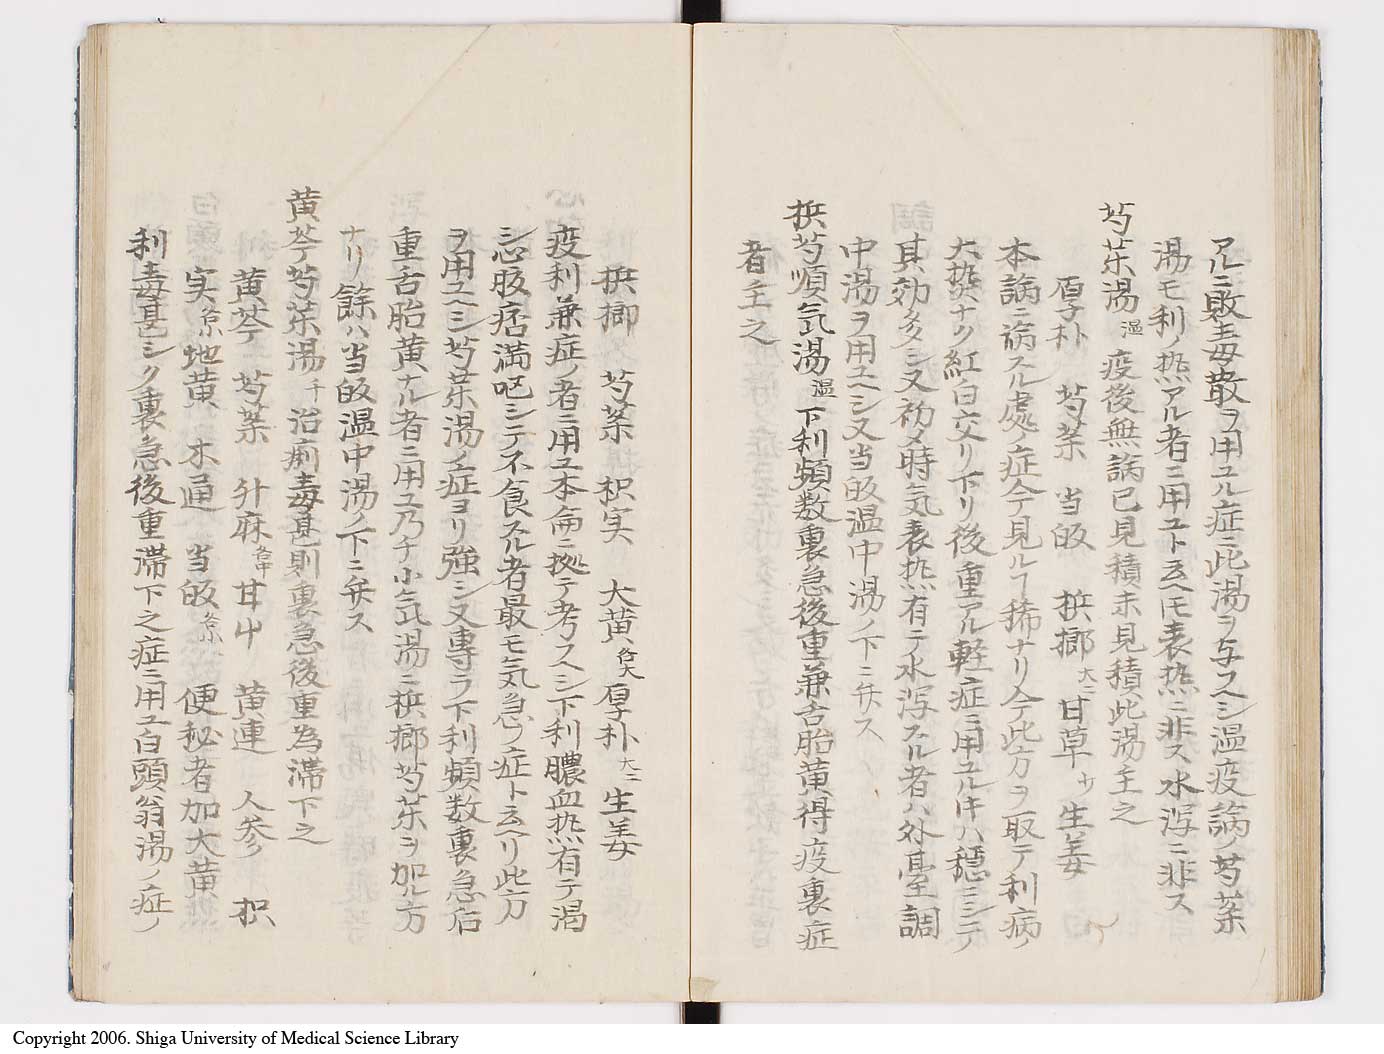 アルニ敗毒散ヲ用ユル症ニ此湯ヲ与スヘシ温疫論ノ芍薬
湯モ利ノ熱アル者ニ用ユト云ヘトモ表熱ニ非ス水瀉ニ非ス
芍薬湯 温 疫後無論已見積未見積此湯主之
厚朴 芍薬 当皈 梹榔 大二 甘草 サ 生姜
本論ニ病スル處ノ症今見ルヿ稀ナリ今此方ヲ取テ利病ノ
大熱ナク紅白交リ下リ後重アル軽症ニ用ユル片ハ穏ニシテ
其効多シ又初メ時気表熱有テ水瀉スル者ハ外臺調
中湯ヲ用ユヘシ又当皈温中湯ノ下ニ弁ス
梹芍順気湯 温 下利頻数裏急後重兼舌胎黄得疫裏症
者主之
梹榔 芍薬 枳実 大黄 各大 厚朴 大二 生姜
疫利兼症ノ者ニ用ユ本侖ニ拠テ考スヘシ下利膿血熱有テ渇
シ心腹痞満呕シテ不食スル者最モ気急ノ症ト云ヘリ此方
ヲ用ユヘシ芍薬湯ノ症ヨリ強シ又専ラ下利頻数裏急后
重舌胎黄ナル者ニ用ユ乃チ小気湯ニ梹榔芍薬ヲ加ル方
ナリ餘ハ当皈温中湯ノ下ニ弁ス
黄芩芍薬湯 千 治痢毒甚則裏急後重為滞下之
黄芩 芍薬 升麻 各中 甘屮 黄連 人参 枳
実 各 地黄 木通 当皈 各 便秘者加大黄
利毒甚シク裏急後重滞下之症ニ用ユ白頭翁湯ノ症ノ
Copyright 2006. Shiga University of Medical Science Library